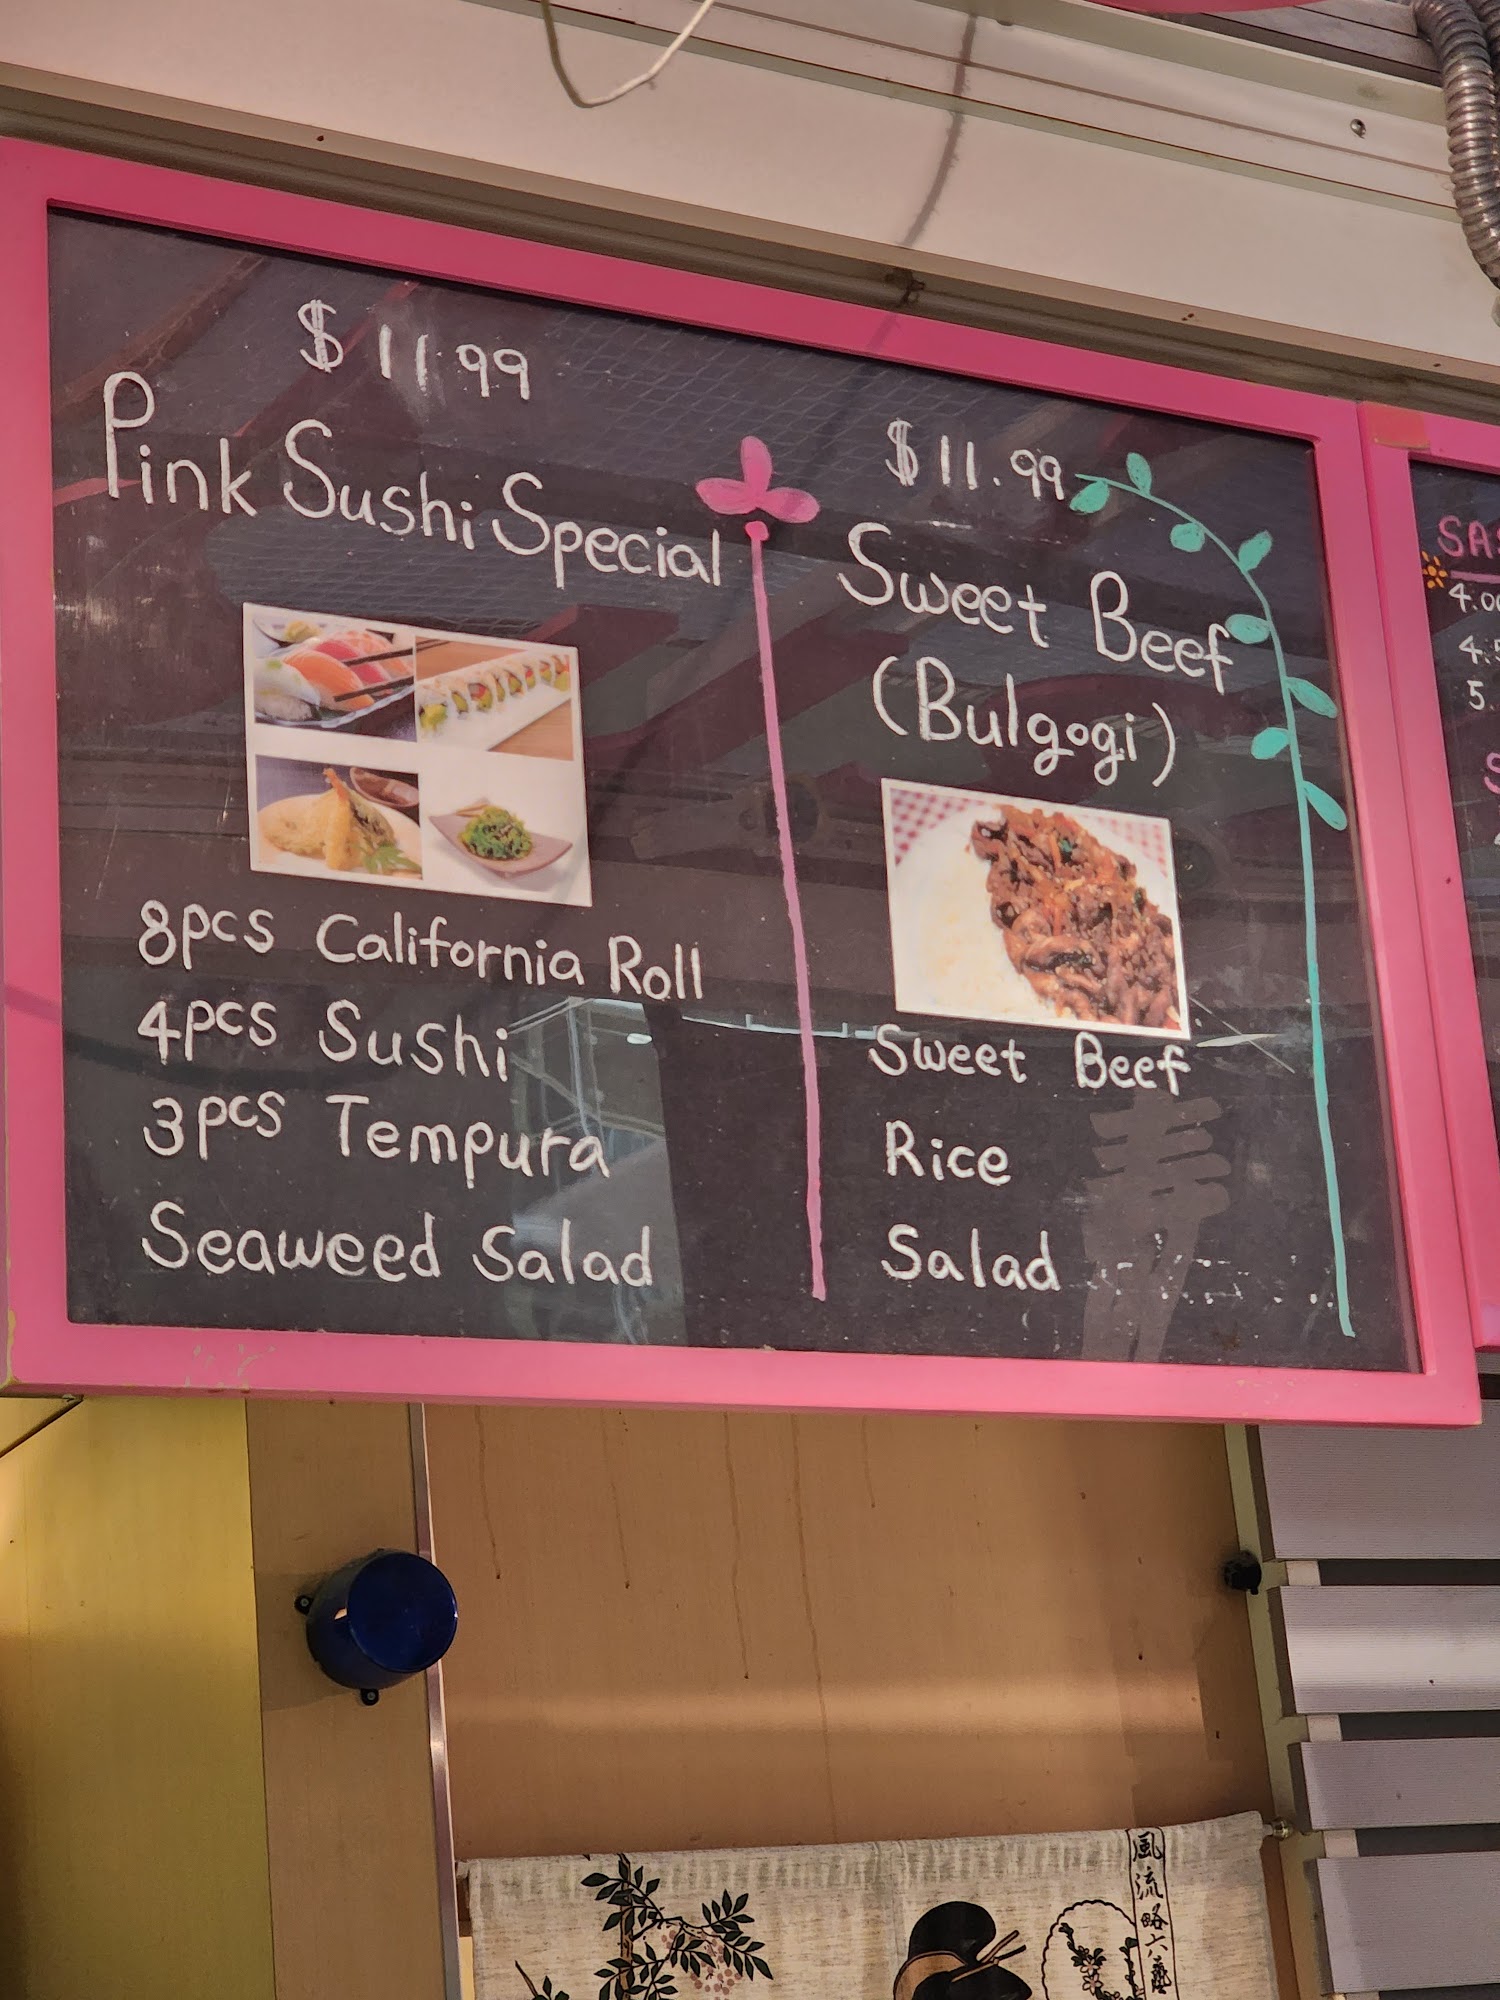 $ 11.99
Pink Sushi Special
8pcs California Roll
4pcs Sushi
3pcs Tempura
Seaweed Salad
$11.99
Sweet Beef
(Bulgogi)
Sweet Beef
Rice
Salad
4.5
5.
風流略六藝